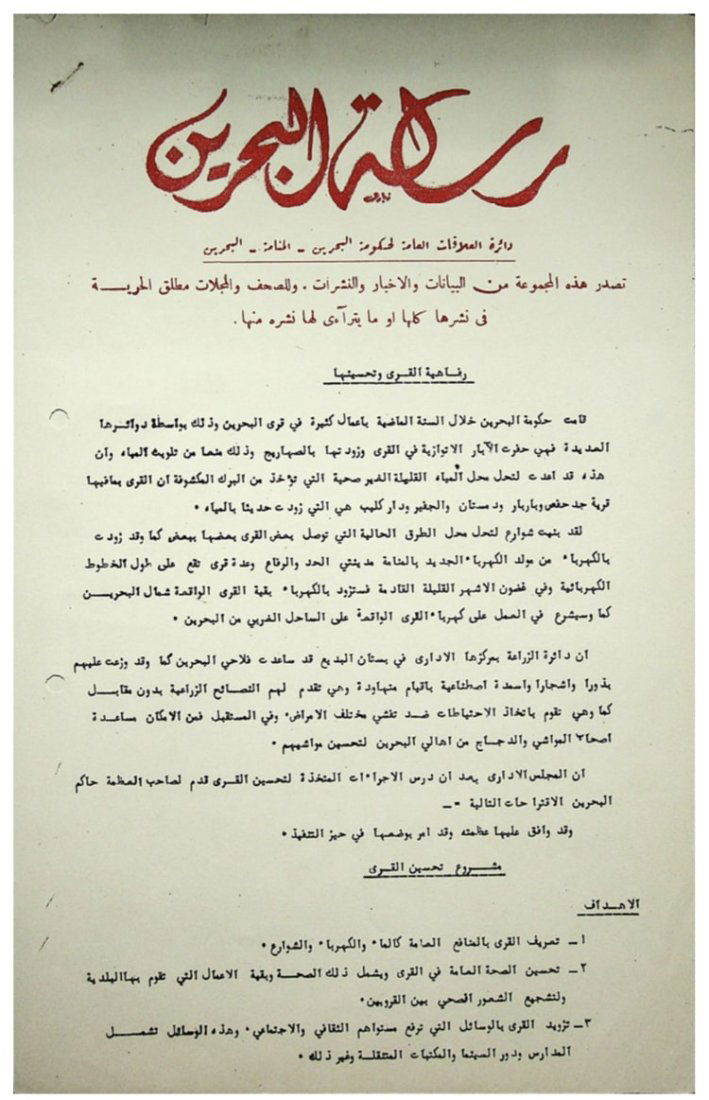 رسالة البحرين
دائرة العلاقات العامة لحكومة البحرين - المنامة - البحرين
تصدر هذه المجموعة من البيانات والاخبار والنشرات . وللصحف والمجلات مطلق الحرية
فى نشرها كلها او ما يترآءى لها نشره منها .
رفاهية القرى وتحسينها
قامت حكومة البحرين خلال السنة الماضية باعمال كثيرة في قرى البحرين وذلك بواسطة دوائرها
العديدة فهي حفرت الآبار الاتوازية في القرى وزودتها بالصهاريج وذلك منعا من تلويث المياه وان
هذه قد اعدت لتحل محل المياه القليلة الغير صحية التي تؤخذ من البرك المكشوفة ان القرى بمافيها
قرية جدحفص وباربار ودمستان والجفير ودار كليب هي التي زودت حديثا بالمياه .
لقد بنيت شوارع لتحل محل الطرق الحالية التي توصل بعض القرى بعضها ببعض كما وقد زودت
بالكهرباء من مولد الكهرباء الجديد بالمنامة مدينتي الحد والرفاع وعدة قرى تقع على طول الخطوط
الكهربائية وفي غضون الاشهر القليلة القادمة فستزود بالكهرباء بقية القرى الواقعة شمال البحريـــن
كما وسيشرع في العمل على كهرباء القرى الواقعة على الساحل الغربي من البحرين .
ان دائرة الزراعة بمركزها الادارى في بستان البديع قد ساعدت فلاحي البحرين كما وقد وزعت عليهم
بذورا واشجارا واسمدة اصطناعية باقيام متهاودة وهي تقدم لهم النصائح الزراعية بدون مقابـــل
كما وهي تقوم باتخاذ الاحتياطات ضد تفشي مختلف الامراض . وفي المستقبل فمن الامكان مساعـــدة
اصحاب المواشي والدجاج من اهالي البحرين لتحسين مواشيهم .
ان المجلس الادارى بعد ان درس الاجراءات المتخذة لتحسين القرى قدم لصاحب العظمة حاكم
البحرين الاقتراحات التالية :-
وقد وافق عليها عظمته وقد امر بوضعها في حيز التنفيذ .
مشـــروع تحسين القرى
الاهداف
١ـ تعريف القرى بالمنافع العامة كالماء والكهرباء والشوارع .
٢ـ تحسين الصحة العامة في القرى ويشمل ذلك الصحــة وبقية الاعمال التي تقوم بها البلدية
ولتشجيع الشعور الصحي بين القرويين .
٣ـ تزويد القرى بالوسائل التي ترفع مستواهم الثقافي والاجتماعي . وهذه الوسائل تشمـــل
المدارس ودور السينما والمكتبات المتنقلة وغير ذلك .